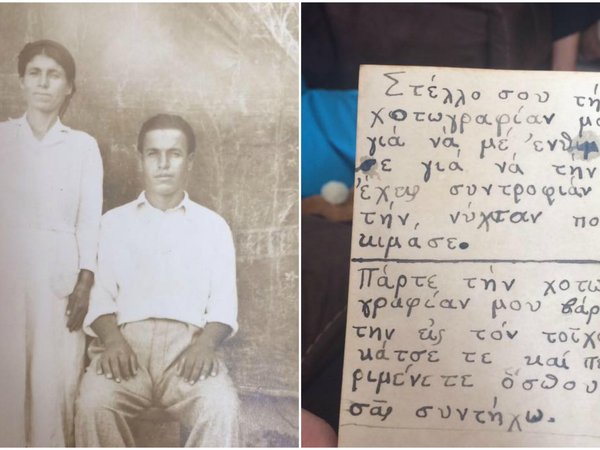 Στέλλο σου τή
χοτωγραφίαν μο
γιά νά μέ ἐνθιμ
σε γιά νά τήν
ἔχεις συντροφιάν
τήν, νύχταν πο
κιμάσε.
Πάρτε τήν χοτω
γραφίαν μου βάρ
την εἰς τόν τοῖχο
κάτσε τε καί πε
ριμένετε ὅσθου
σᾶς συντήχω.